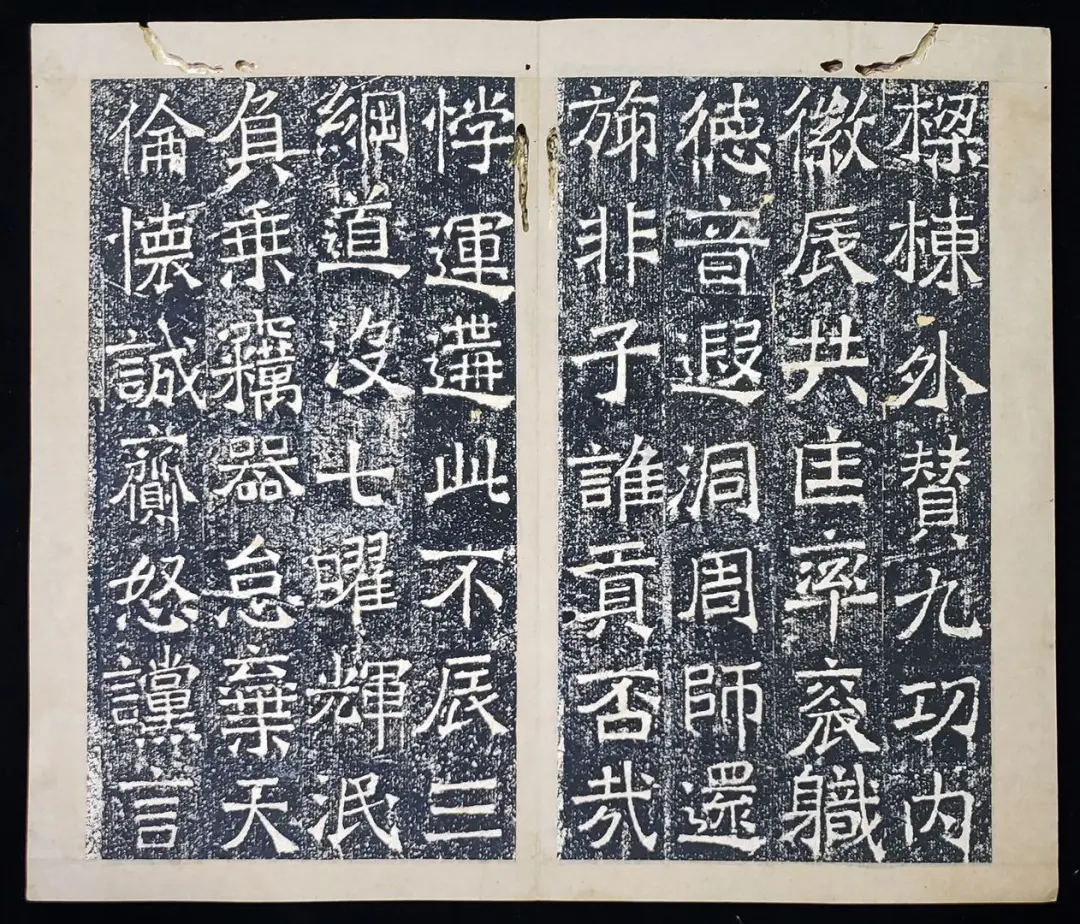 樑棟外賛九功内
徽辰共匡率衮職
徳音遐洞周師還
旆非子誰貢否哉
悖運遘此不辰三
綱道没七曜輝泯
負乗竊器怠棄天
倫懐誠齎怒讜言